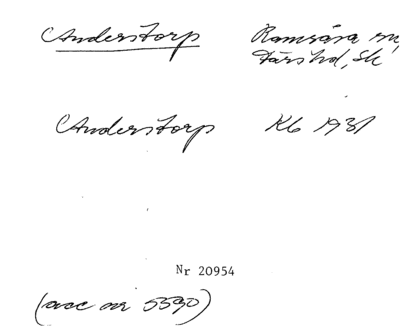 Anderstorp Ramsåsa sn,
Färs hd, Sk
Anderstorp Kb 1931
Nr 20954
(acc nr 5590)